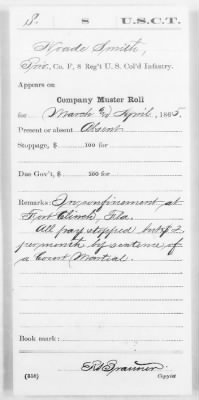 S. 8 U.S.C.T.
Smith,
Pvt., Co. F, 8 Reg't U. S. Col'd Infantry.
Appears on
Company Muster Roll
for March & April, 1865.
Present or absent Absent
Stoppage, $ 100 for
Due Gov't, $ 100 for
Remarks: In confinement at
Fort Clinch, Fla.
All pay stopped but $2
per month by sentence of
a Court Martial.
Book mark:
(358) Copyist